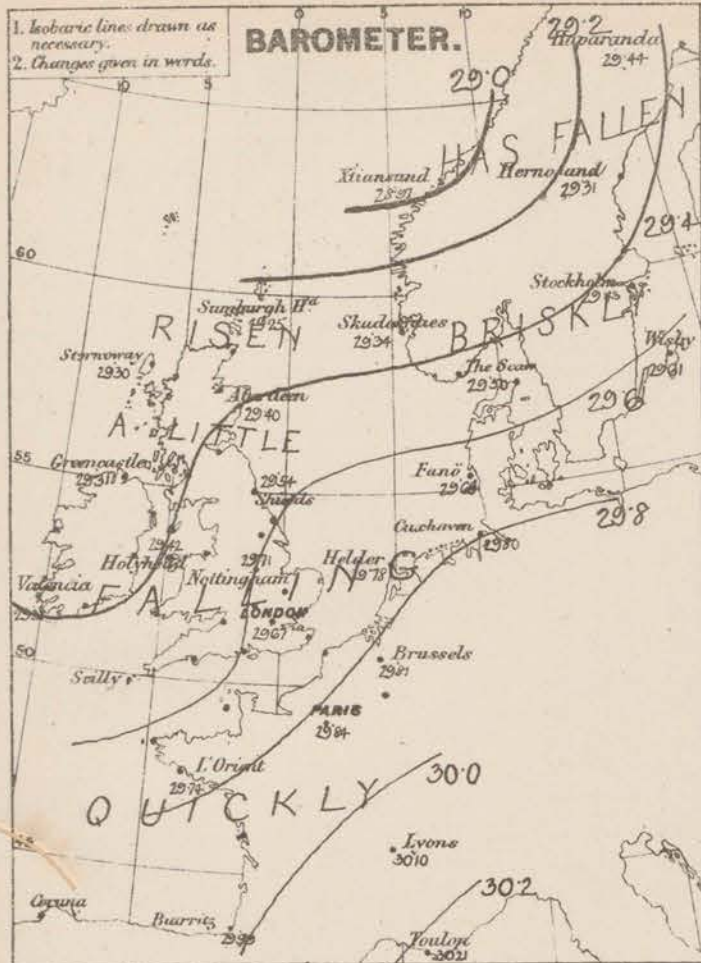 1. Isobaric lines drawn as
necessary.
2. Changes given in words.
BAROMETER.
10
5
0
5
10
29.2
Haparanda
29.44
29.0
HAS FALLEN
Xtiansund
28.97
Hernosand
29.31
29.4
60
Stockholm
29.43
Sumburgh Hd
29.25
RISEN
Skudesnes
29.34
BRISKLY
Wisby
29.61
Stornoway
29.30
The Scaw
29.50
Aberdeen
29.40
29.6
A LITTLE
55
Greencastle
29.31
29.54
Shields
Fanö
29.8
Cuxhaven
29.80
29.42
Holyhead
29.71
Nottingham
Helder
29.78
Valencia
FALLING
LONDON
29.67
50
Scilly
Brussels
29.81
PARIS
29.84
L'Orient
29.74
30.0
QUICKLY
45
Lyons
30.10
30.2
Coruna
Biarritz
Toulon
30.21